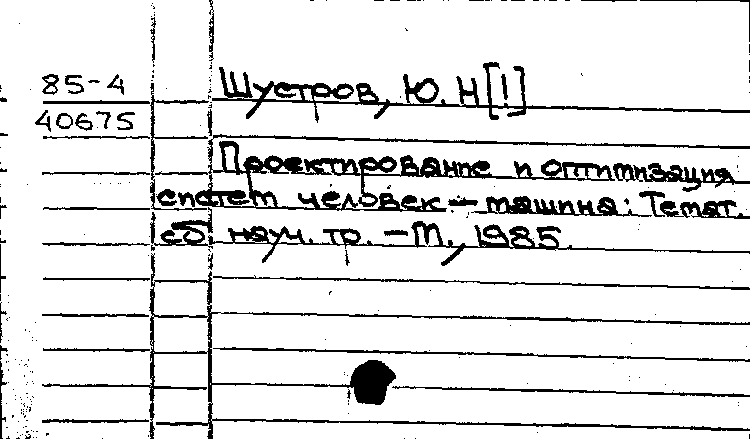 85-4
40675
Шустров, Ю. Н [!]
Проектирование и оптимизация
систем человек — машина: Темат.
сб. науч. тр. — М., 1985.